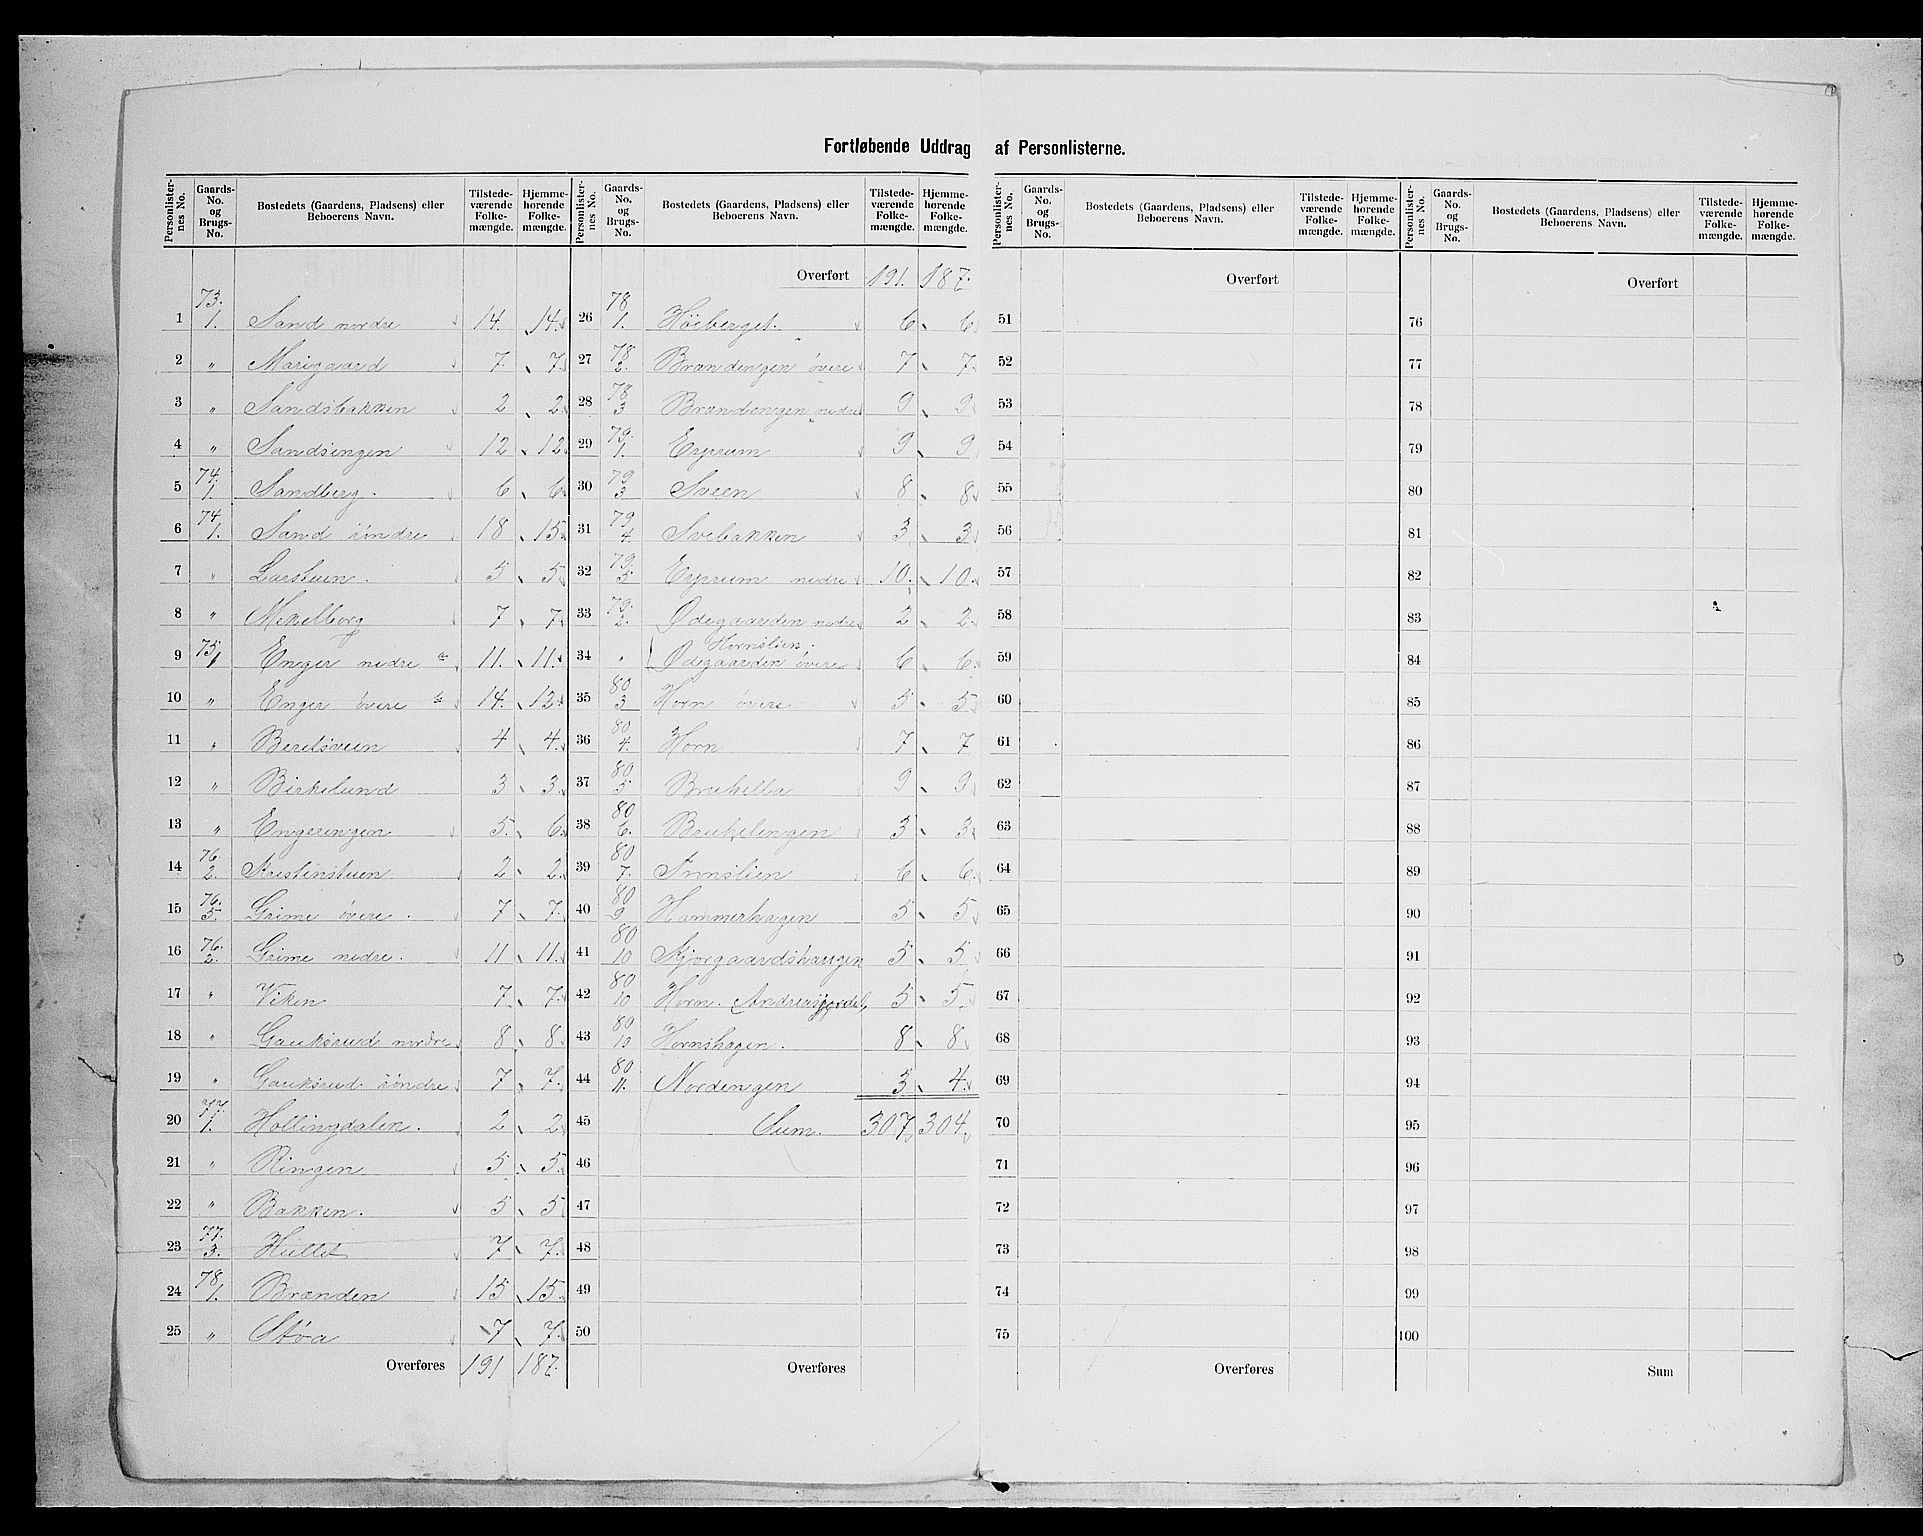 Fortløbende Uddrag af Personlisterne.
Personlisternes No. Gaards-No. og Brugs-No. Bostedets (Gaardens, Pladsens) eller Beboerens Navn. Tilstedeværende Folkemængde. Hjemmehørende Folkemængde.
1 73. 1. Sand nordre 14. 14.
2 " Marigaard 7. 7.
3 " Sandsbakken 2 2
4 " Sandsengen 12 12
5 74. 1. Sandberg. 6 6
6 74. 1. Sand söndre 18 15
7 " Larstuen. 5 5
8 " Mekelborg 7 7
9 75. 1 Enger nedre 11. 11.
10 " Enger övere 14. 12.
11 " Beretsveen 4 4.
12 " Birkelund 3 3.
13 " Engerengen 5. 6
14 76. 2. Kristenstuen 2 2.
15 76. 5. Grime övere. 7 7.
16 76. 2. Grime nedre. 11 11.
17 " Viken 7. 7.
18 " Gauksrud nordre 8 8.
19 " Gauksrud söndre 7 7.
20 77. 1. Hollingdalen. 2 2
21 " Ringen 5 5.
22 " Bakken. 5 5
23 77. 3. Hullet 7 7.
24 78. 1. Brænden 15 15.
25 " Støa 7 7.
Overføres 191 187.
Personlisternes No. Gaards-No. og Brugs-No. Bostedets (Gaardens, Pladsens) eller Beboerens Navn. Tilstedeværende Folkemængde. Hjemmehørende Folkemængde.
Overført 191. 187.
26 78 1. Höiberget. 6 6
27 78 2. Brændengen övere 7 7.
28 78 3 Brændengen nedre 9 9
29 79. 1. Erprum 9 9
30 79 3 Sveen 8 8
31 79 4 Svebakken 3 3
32 79. 5 Erprum nedre 10. 10.
33 79. 2. Ødegaarden nedre 2 2.
Hornslien.
34 " Ødegaarden övere 6 6.
35 80 3 Horn övere 5 5
36 80 4. Horn 7 7
37 80 5 9 9
38 80 6. 3 3
39 80 7. 6 6.
40 80 9 Hammerhagen 5 5
41 80 10 5 5.
42 80 10 Horn. 5 5.
43 80 10 Hornshagen. 8 8
44 80 11. Nordengen 3 4.
45 Sum. 307 304.
46
47
48
49
50
Overføres
Personlisternes No. Gaards-No. og Brugs-No. Bostedets (Gaardens, Pladsens) eller Beboerens Navn. Tilstedeværende Folkemængde. Hjemmehørende Folkemængde.
Overført
51
52
53
54
55
56
57
58
59
60
61
62
63
64
65
66
67
68
69
70
71
72
73
74
75
Overføres
Personlisternes No. Gaards-No. og Brugs-No. Bostedets (Gaardens, Pladsens) eller Beboerens Navn. Tilstedeværende Folkemængde. Hjemmehørende Folkemængde.
Overført
76
77
78
79
80
81
82
83
84
85
86
87
88
89
90
91
92
93
94
95
96
97
98
99
100
Sum